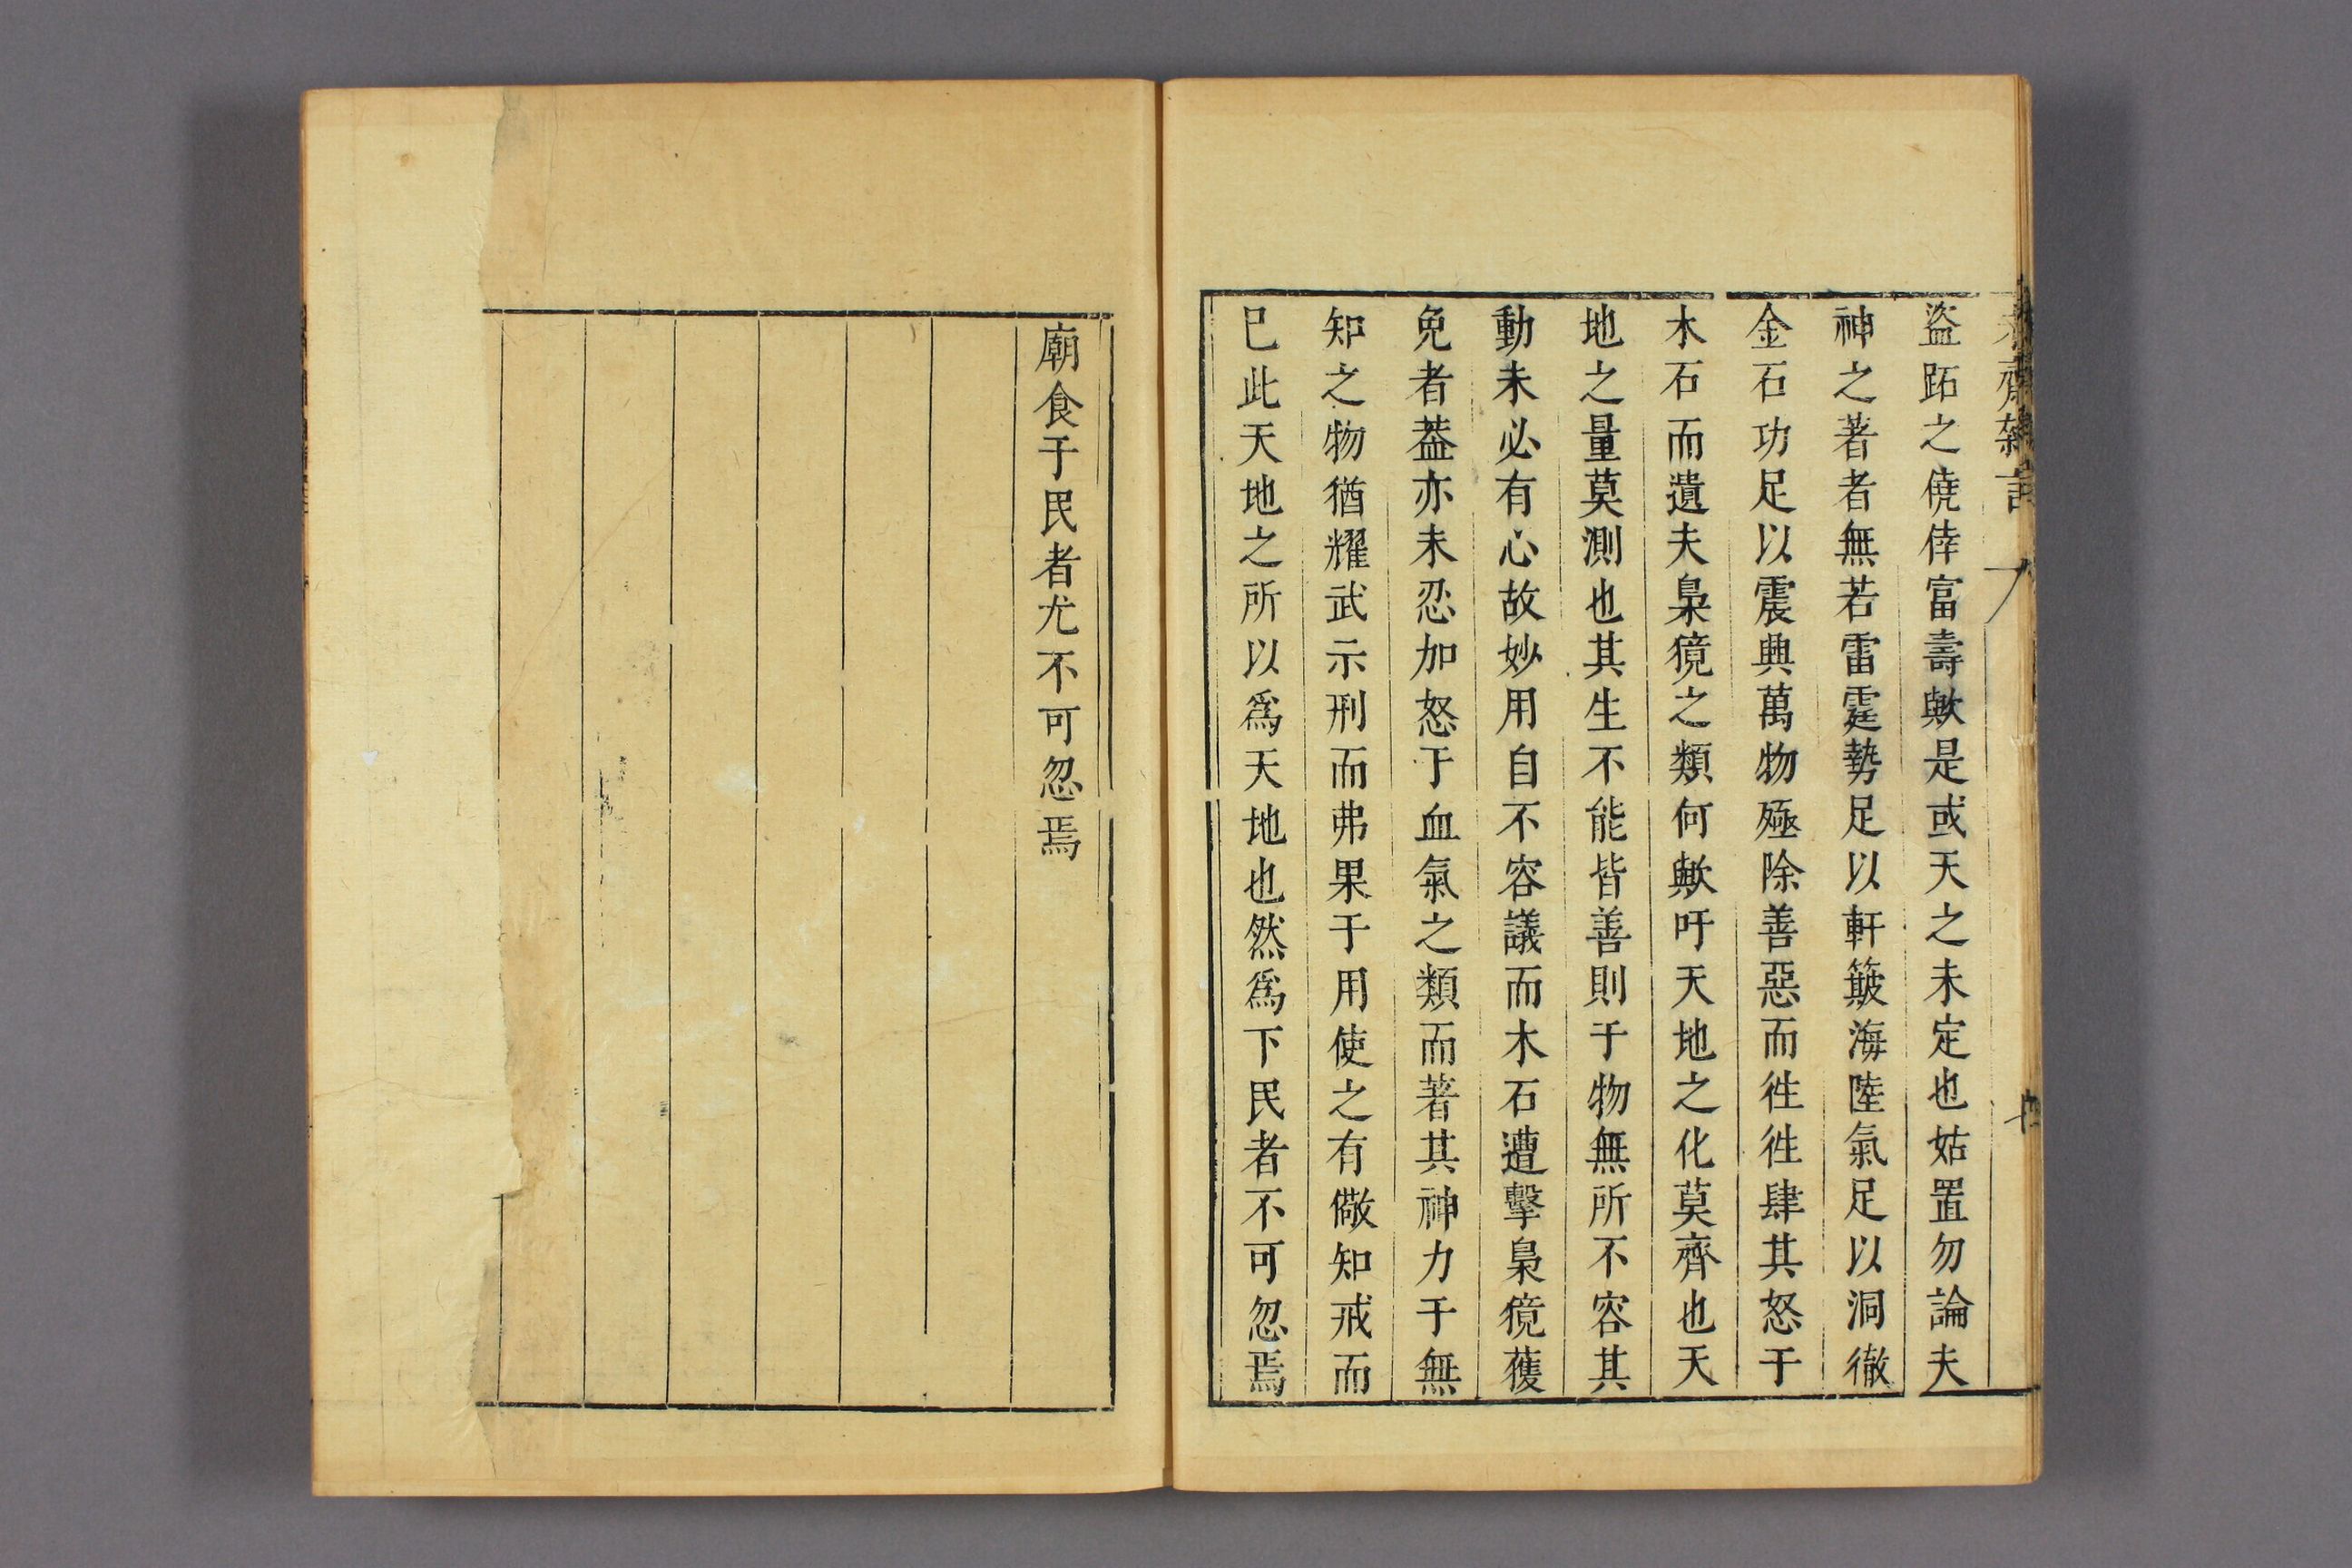 齋雜言
盜跖之僥倖富壽歟是或天之未定也姑置勿論夫
神之著者無若雷霆勢足以軒簸海陸氣足以洞徹
金石功足以震興萬物殛除善惡而徃徃肆其怒于
木石而遺夫梟獍之類何歟吁天地之化莫齊也天
地之量莫測也其生不能皆善則于物無所不容其
動未必有心故妙用自不容議而木石遭擊梟獍獲
免者葢亦未忍加怒于血氣之類而著其神力于無
知之物猶耀武示刑而弗果于用使之有儆知戒而
巳此天地之所以爲天地也然爲下民者不可忽焉
廟食于民者尤不可忽焉